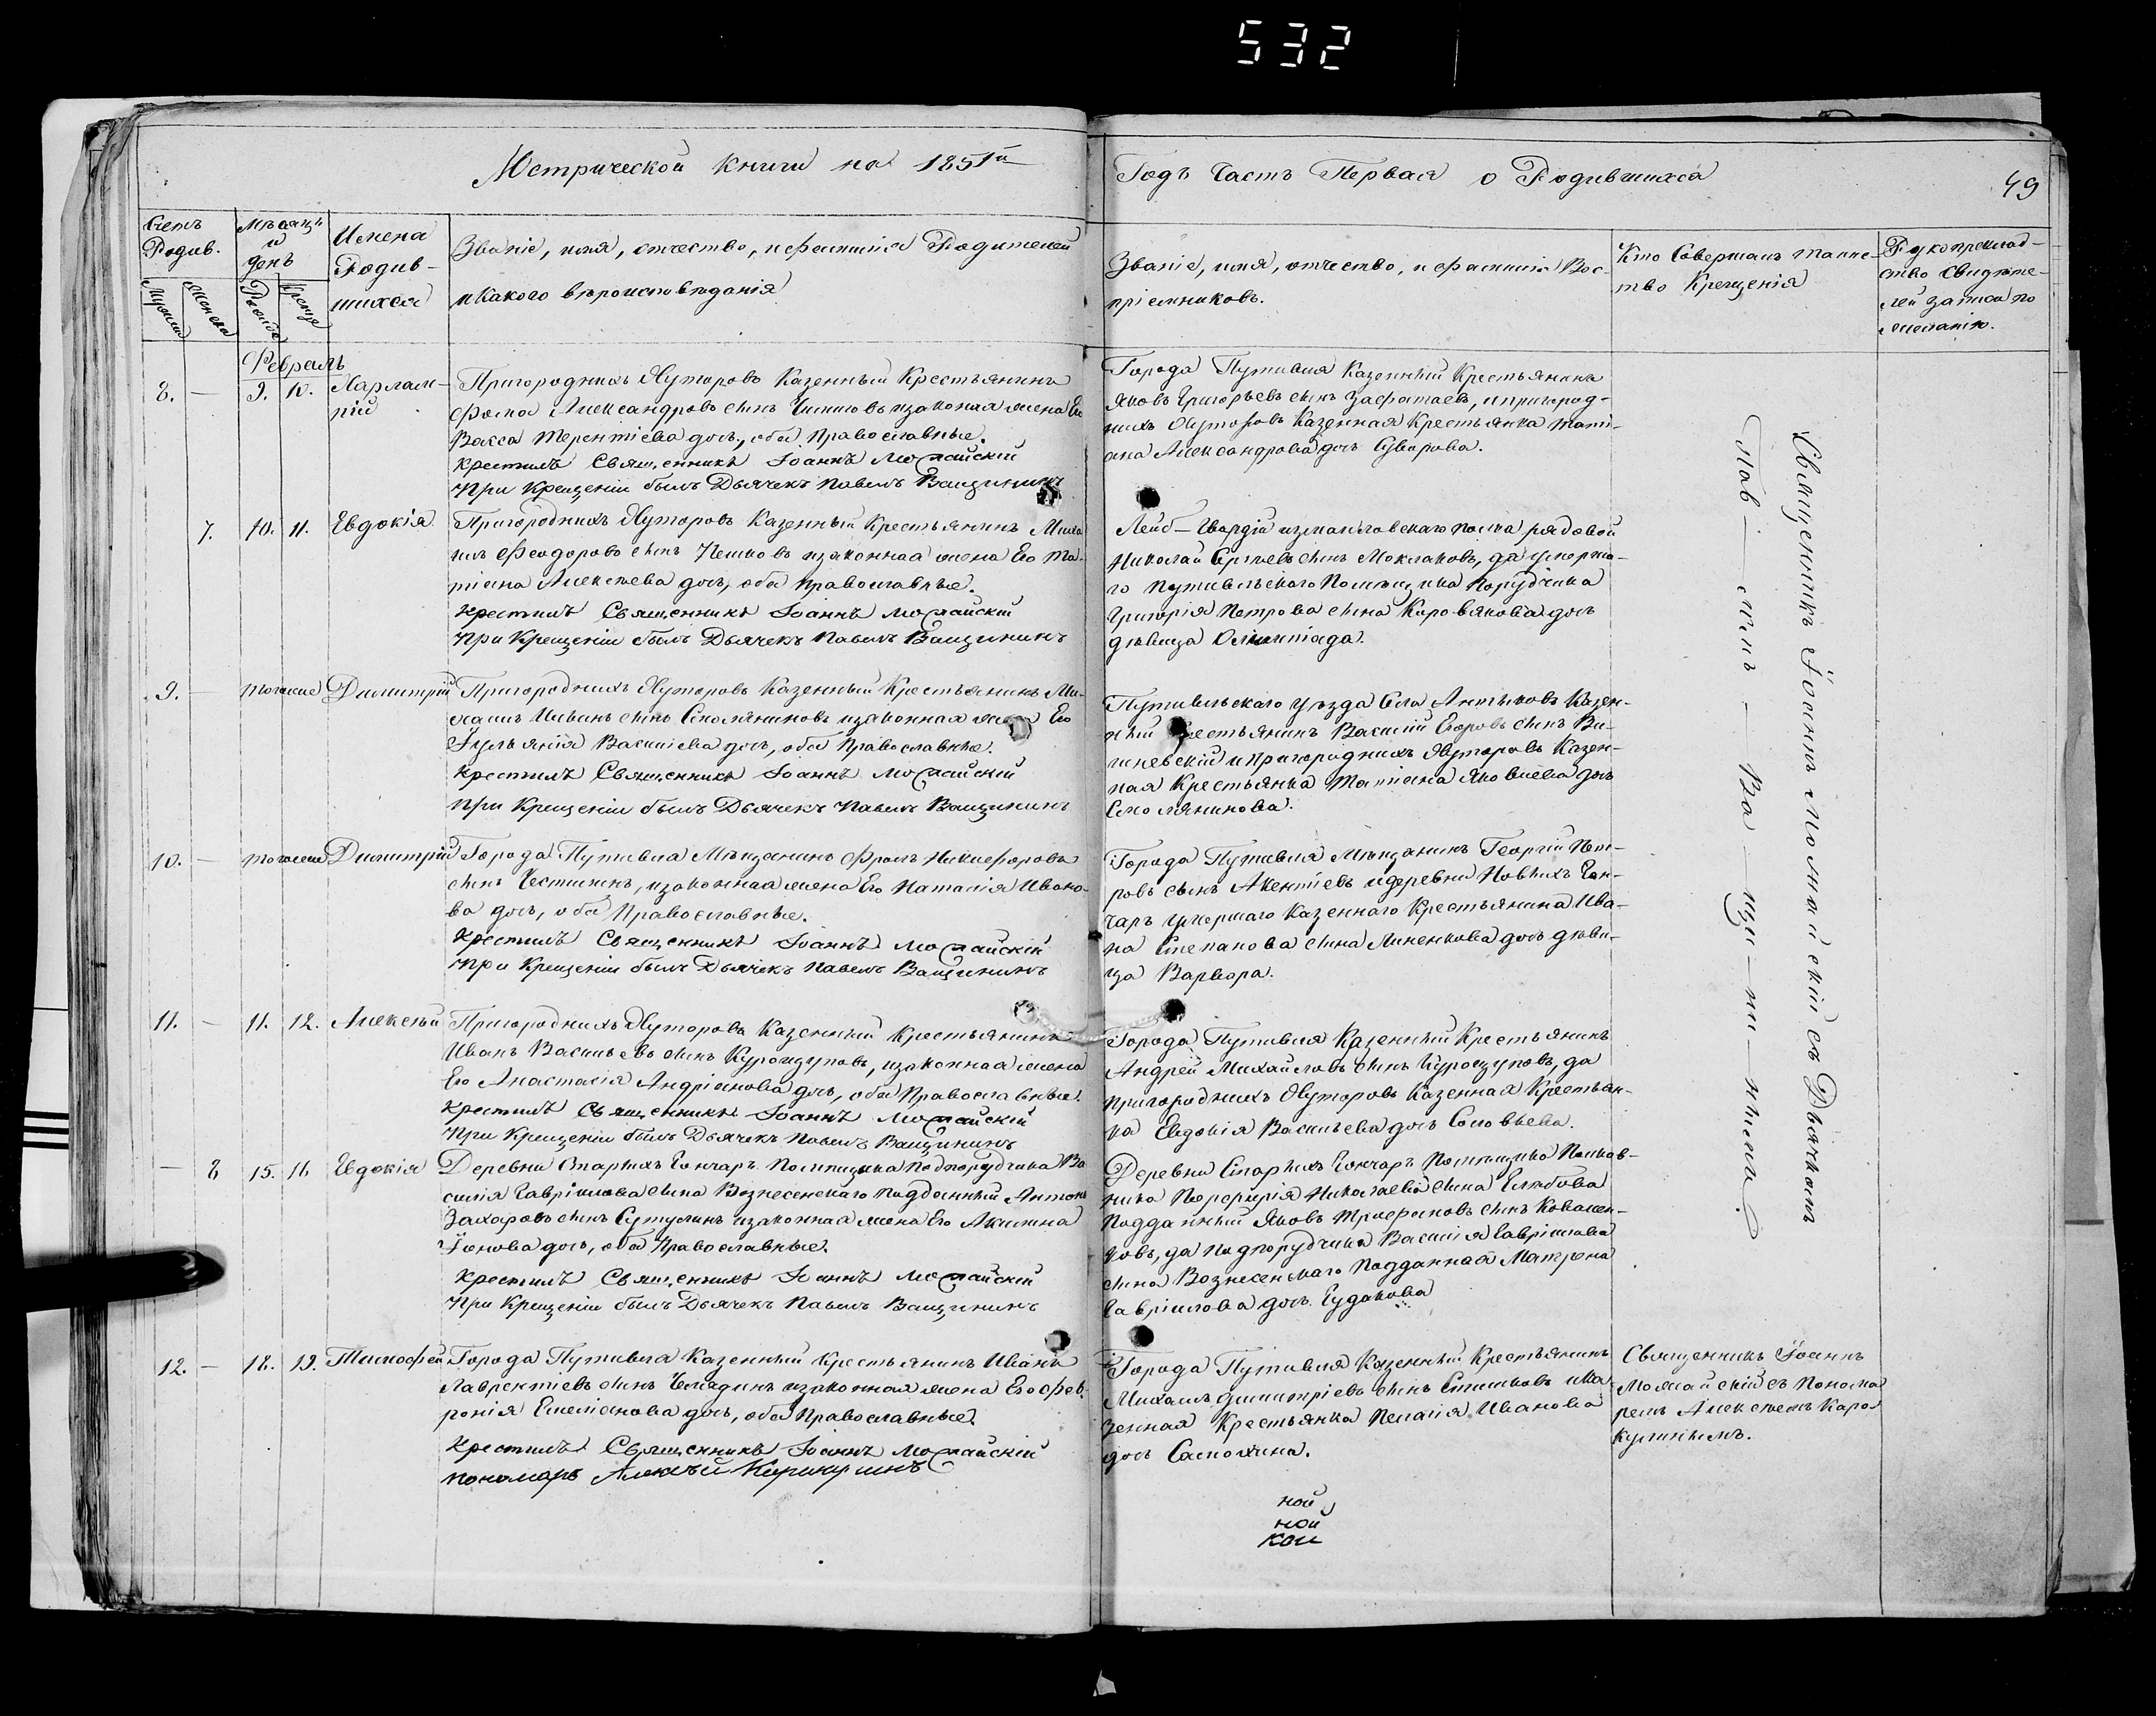 532
Метрической книги на 1851й
Годъ Часть Первая о Родившихся
49
Счетъ Родив.
Мужеска
Женска
Мѣсяцъ и день
Рожде
Креще
Имена Родив-
шихся
Званіе, имя, отчество, и фамилія Родителей
и Какого вѣроисповѣданія
Званіе, имя, отчество, и фамилія Вос-
пріемниковъ.
Кто Совершалъ таинс-
тво Крещенія
Рукоприклад-
ство Свидѣте-
лей записи по
желанію.
Февраль
8. — 9. 10. Харлам-
пій
Пригородныхъ Хуторовъ Казенный Крестьянинъ
Фома Александровъ сынъ изаконая жена Его
Васса Терентіева дочь, оба Православные.
Крестилъ Священникъ Іоаннъ Можайскій
При Крещеніи былъ Дьячекъ Павелъ Ващининъ
Города Путивля Казенный Крестьянинъ
Яковъ Григорьевъ сынъ, ипригород-
ныхъ Хуторовъ Казенная Крестьянка Тати-
ана Александрова дочь Суворова.
7. 10. 11. Евдокія
Пригородныхъ Хуторовъ Казенный Крестьянинъ Миха
илъ Феодоровъ сынъ Пешковъ изаконная жена Его Та-
тіана Алексѣева дочь, оба Православные.
Крестилъ Священникъ Іоаннъ Можайскій
При Крещеніи былъ Дьячекъ Павелъ Ващининъ
Лейб-Гвардіи измаиловскаго полка рядовой
Николай Сергѣевъ сынъ Моклаковъ, да умерша-
го Путивльскаго Помѣщика Порутчика
Григорія Петрова сына Коровякова дочь
дѣвица Олимпіада.
9. — тогоже Димитрій
Пригородныхъ Хуторовъ Казенный Крестьянинъ Ми-
хаилъ Ивановъ сынъ Смоляниновъ изаконная жена Его
Іуліанія Василіева дочь, оба Православные.
Крестилъ Священникъ Іоаннъ Можайскій
При Крещеніи былъ Дьячекъ Павелъ Ващининъ
Путивльскаго уѣзда Села Антыковъ Казен-
ный Крестьянинъ Василій Егоровъ сынъ Ви-
шневскій ипригородныхъ Хуторовъ Казен-
ная Крестьянка Татіана Яковлева дочь
Смолянинова.
10. — тогоже Димитрій
Города Путивля Мѣщанинъ Фролъ Никифоровъ
сынъ, изаконная жена Его Наталія Ивано-
ва дочь, оба Православные.
Крестилъ Священникъ Іоаннъ Можайскій
При Крещеніи былъ Дьячекъ Павелъ Ващининъ
Города Путивля Мѣщанинъ Георгій Пет-
ровъ сынъ Акентіевъ идеревни Новыхъ Гон-
чаръ умершаго Казеннаго Крестьянина Ива-
на Степанова сына Линенкова дочь дѣви-
ца Варвара.
11. — 11. 12. Алексѣй
Пригородныхъ Хуторовъ Казенный Крестьянинъ
Иванъ Васильевъ сынъ Курощуповъ, изаконная жена
Его Анастасія Андріанова дочь, оба Православные.
Крестилъ Священникъ Іоаннъ Можайскій
При Крещеніи былъ Дьячекъ Павелъ Ващининъ
Города Путивля Казенный Крестьянинъ
Андрей Михайловъ сынъ Курощуповъ, да
пригородныхъ Хуторовъ Казенная Крестьян-
ка Евдокія Васильева дочь Соловьева.
— 8 15. 16. Евдокія
Деревни Старыхъ Гончаръ Помѣщика Подпорудчика Ва
силія Гавріилова сына Вознесенскаго Подданный Антонъ
Захаровъ сынъ Сутулинъ изаконная жена Его Акилина
Іонова дочь, оба Православные.
Крестилъ Священникъ Іоаннъ Можайскій
При Крещеніи былъ Дьячекъ Павелъ Ващининъ
Деревни Старыхъ Гончаръ Помѣщика Полков-
ника Порфирія Николаева сына Глѣбова
Подданный Яковъ Трифановъ сынъ Ковален-
ковъ, да подпорудчика Василія Гавріилова
сына Вознесенскаго Подданная Матрона
Гавріилова дочь Гудакова
12. — 18. 19. Тимофей
Города Путивля Казенный Крестьянинъ Иванъ
Лаврентіевъ сынъ Чемадинъ изаконная жена Его Фев-
ронія Емеліанова дочь, оба Православные.
Крестилъ Священникъ Іоаннъ Можайскій
пономарь Алексѣй Каракулинъ
Города Путивля Казенный Крестьянинъ
Михаилъ Димитріевъ сынъ ика-
зенная Крестьянка Пелагія Иванова
дочь Саполжина.
Священникъ Іоаннъ
Можайскій съ Понома
ремъ Алексѣемъ Кара
кулинымъ.
Священникъ Іоаннъ Можайскій съ Дьячкомъ
Пав — ломъ — Ва — щи — ни — нымъ.
ной
ной
кои